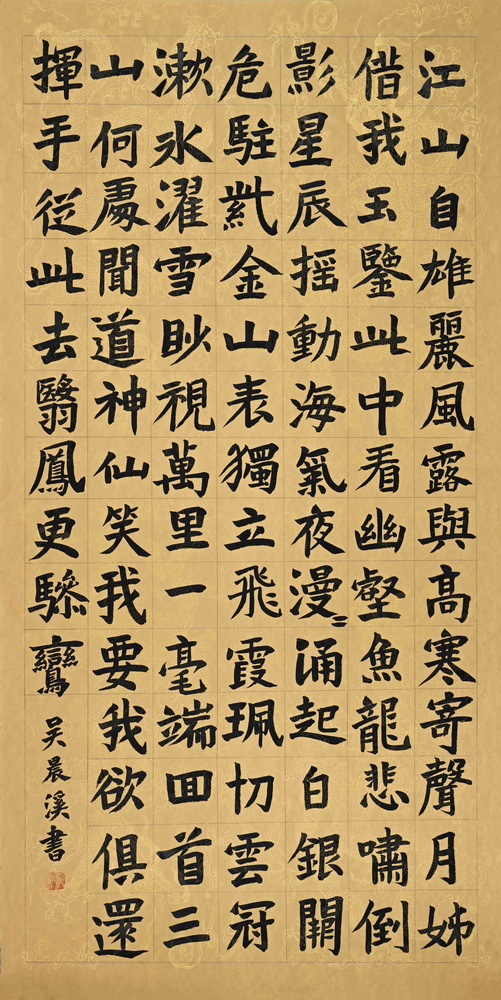 江山自雄麗風露與高寒寄聲月姊
借我玉鑒此中看幽壑魚龍悲嘯倒
影星辰摇動海氣夜漫〻涌起白銀闕
危駐紫金山表獨立飛霞珮切雲冠
漱氷濯雪眇視萬里一毫端回首三
山何處聞道神仙笑我要我欲俱還
揮手從此去翳鳳更驂鸞 吴晨溪書